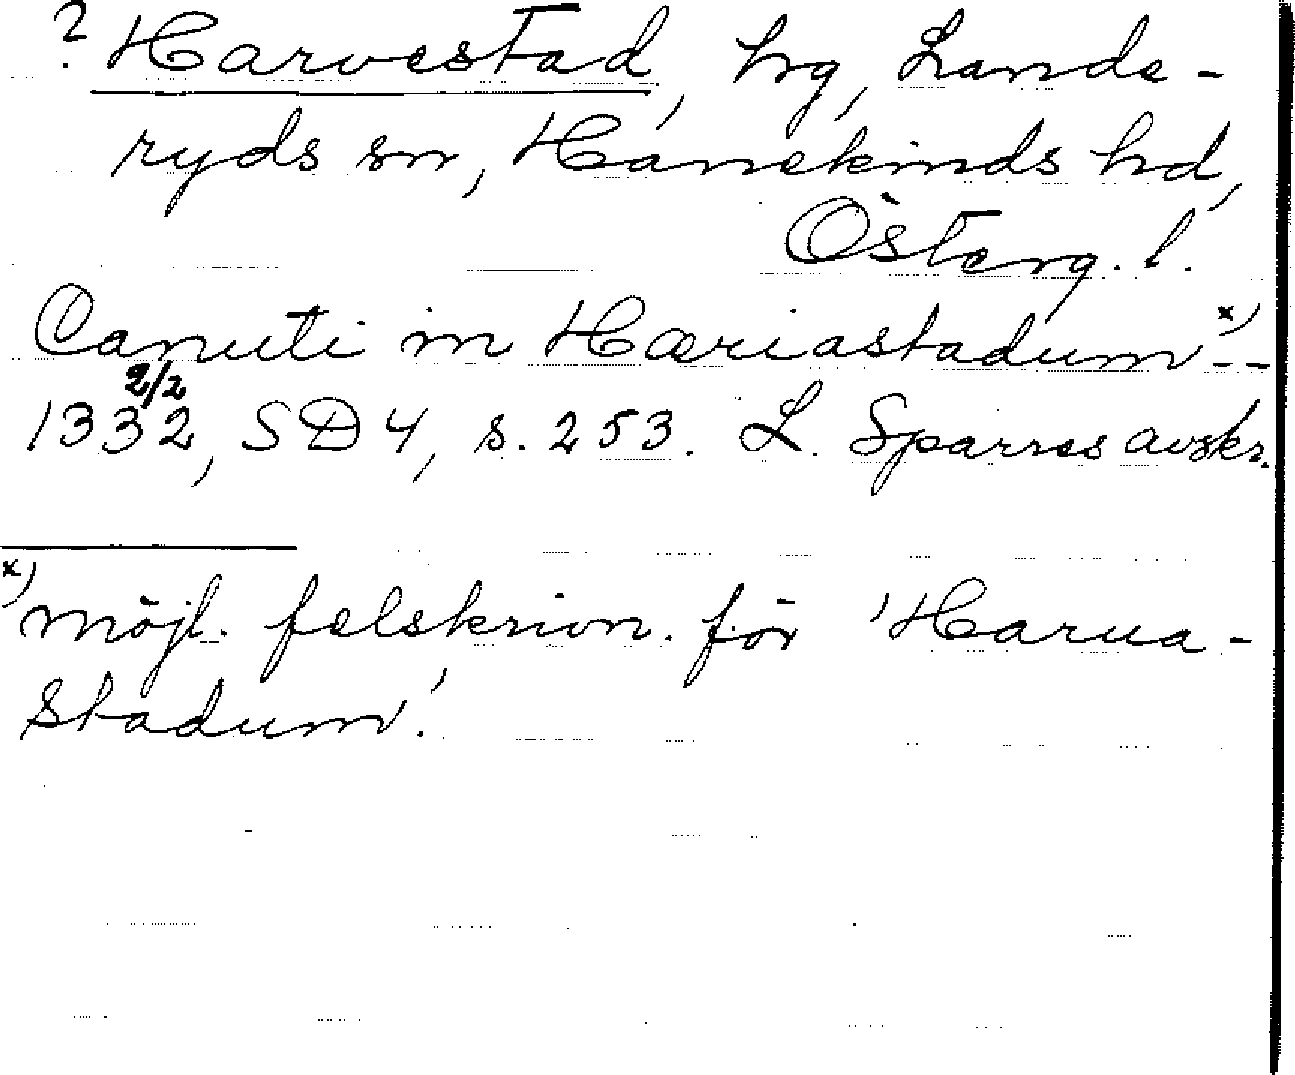 ? Harvestad, hg, Lands-
ryds sn, Hanekinds hd,
Österg. l.
Canuti in Hæriastadum x) --
2/2
1332, SD 4, s. 253. L. Sparres avskr.
x) möjl. felskrivn. för 'Harua-
stadum'.